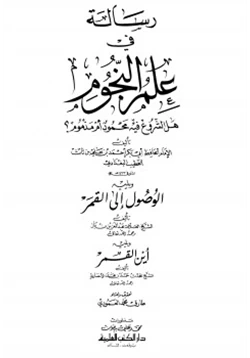 رسالة
في
علم النجوم
هل الشروع فيه محمود أم مذموم؟
تأليف
الإمام الحافظ أبي بكر أحمد بن علي بن ثابت
الخطيب البغدادي
ويليه
الوصول إلى القمر
تأليف
ويليه
أين القمر
تأليف
طارق محمد العمودي
منشورات
محمد علي بيضون
دار الكتب العلمية